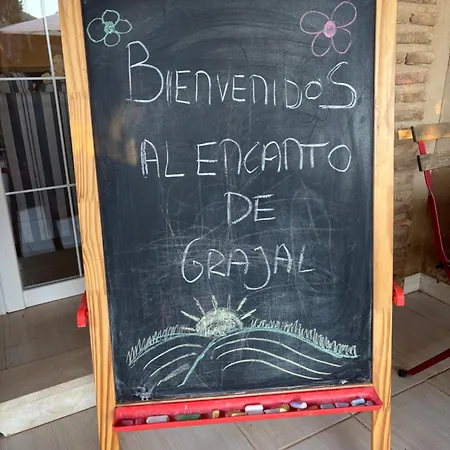 BIENVENIDOS
AL ENCANTO
DE
GRAJAL